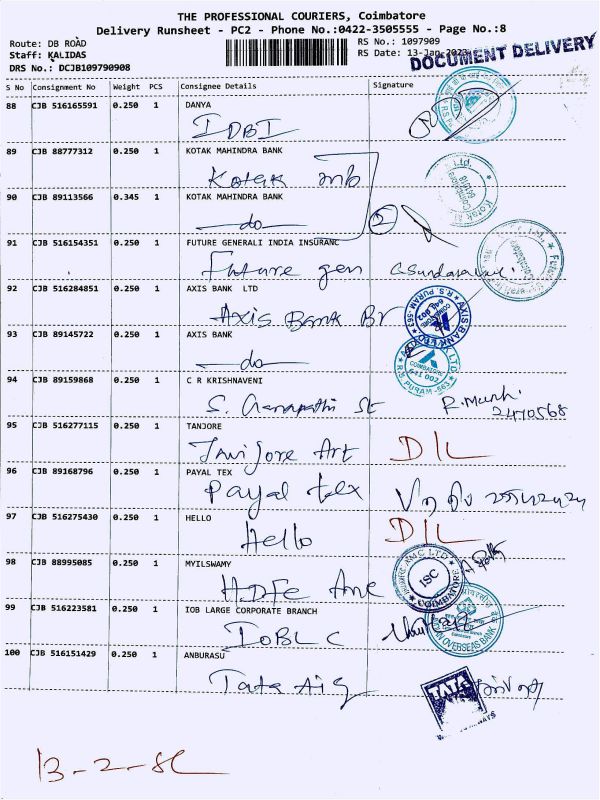 THE PROFESSIONAL COURIERS, Coimbatore
Delivery Runsheet - PC2 - Phone No.:0422-3505555 - Page No.:8
Route: DB ROAD
RS No.: 1097909
Staff: KALIDAS
RS Date: 13-Jan-2023
DOCUMENT DELIVERY
DRS No.: DCJB109790908
S No Consignment No Weight PCS Consignee Details Signature
88 CJB 516165591 0.250 1 DANYA
IDBI
89 CJB 88777312 0.250 1 KOTAK MAHINDRA BANK
Kotak mb
90 CJB 89113566 0.345 1 KOTAK MAHINDRA BANK
do 2
91 CJB 516154351 0.250 1 FUTURE GENERALI INDIA INSURANC
Future gen
92 CJB 516284851 0.250 1 AXIS BANK LTD
Axis Bank Br
AXIS BANK LTD R.S. PURAM-563
93 CJB 89145722 0.250 1 AXIS BANK
do
COIMBATORE 641 002 R.S. PURAM-563
94 CJB 89159868 0.250 1 C R KRISHNAVENI
S. Ganapathi St
95 CJB 516277115 0.250 1 TANJORE
Tanjore Art D/L
96 CJB 89168796 0.250 1 PAYAL TEX
Payal tex
97 CJB 516275430 0.250 1 HELLO
Hello D/L
98 CJB 88995085 0.250 1 MYILSWAMY
ISC COIMBATORE
99 CJB 516223581 0.250 1 IOB LARGE CORPORATE BRANCH
IOB L C
OVERSEAS BANK
100 CJB 516151429 0.250 1 ANBURASU
Tata Aig
TATA